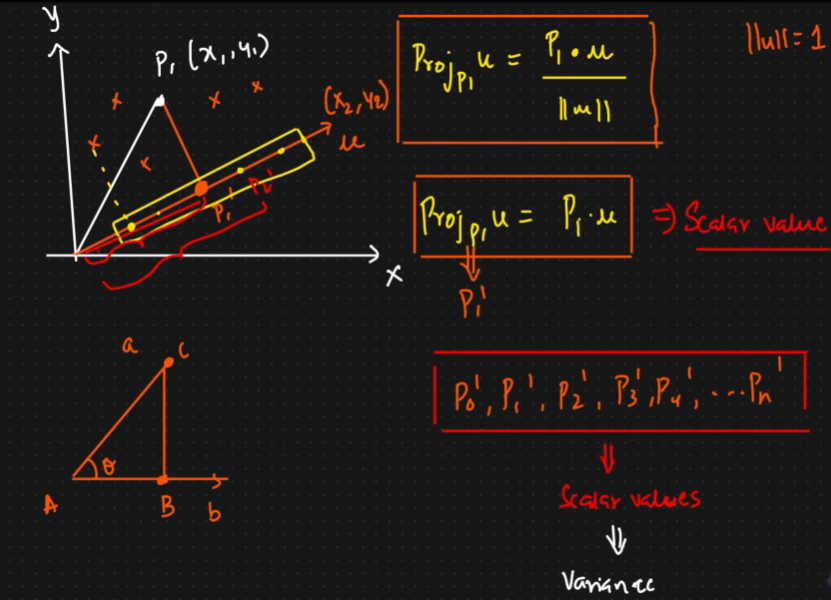 y
P₁ (x₁, y₁)
(x₂, y₂)
u
P₁'
P₂'
x
Proj_P₁ u = P₁ · u / ||u||
||u|| = 1
Proj_P₁ u = P₁ · u ⇒ Scalar value
P₁'
a
C
θ
A
B
b
P₀', P₁', P₂', P₃', P₄', ....Pₙ'
Scalar values
Variance